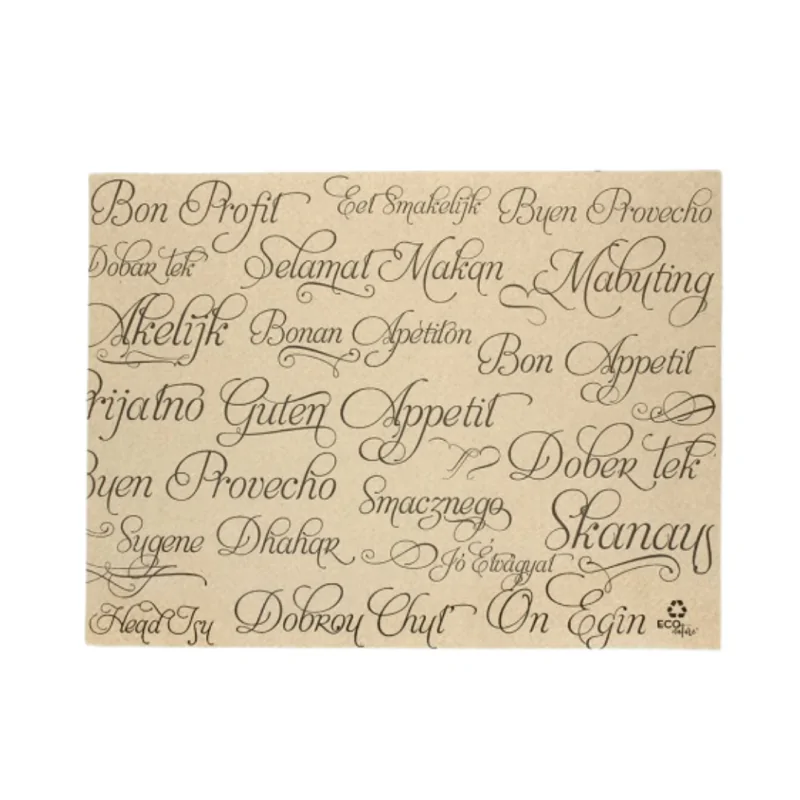 Bon Profit Eet Smakelijk Buen Provecho
Dobar tek Selamat Makan Mabuting
Akelijk Bonan Apétiton
Bon Appetit
rijatno Guten Appetit
Dober tek
Buen Provecho Smacznego
Skanaus
Sygene Dhahar Jó Étvágyat
Head Tsu Dobrou Chut' On Egin
ECO